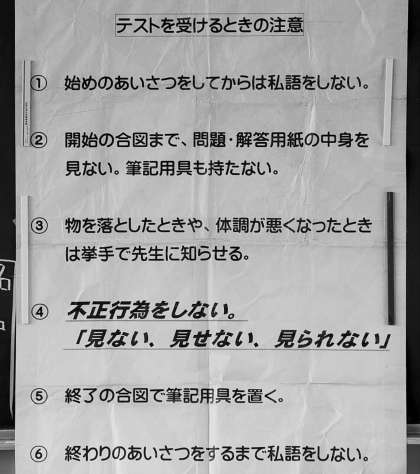 テストを受けるときの注意
① 始めのあいさつをしてからは私語をしない。
② 開始の合図まで、問題・解答用紙の中身を
見ない。筆記用具も持たない。
③ 物を落としたときや、体調が悪くなったとき
は挙手で先生に知らせる。
④ 不正行為をしない。
「見ない、見せない、見られない」
⑤ 終了の合図で筆記用具を置く。
⑥ 終わりのあいさつをするまで私語をしない。